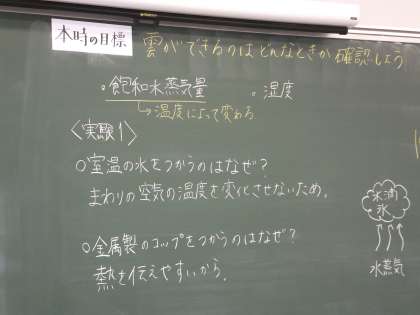 本時の目標
雲ができるのはどんなときか確認しよう
・飽和水蒸気量 ・湿度
↳温度によって変わる
〈実験1〉
○室温の水をつかうのはなぜ?
まわりの空気の温度を変化させないため。
○金属製のコップをつかうのはなぜ?
熱を伝えやすいから。
水滴
氷
水蒸気